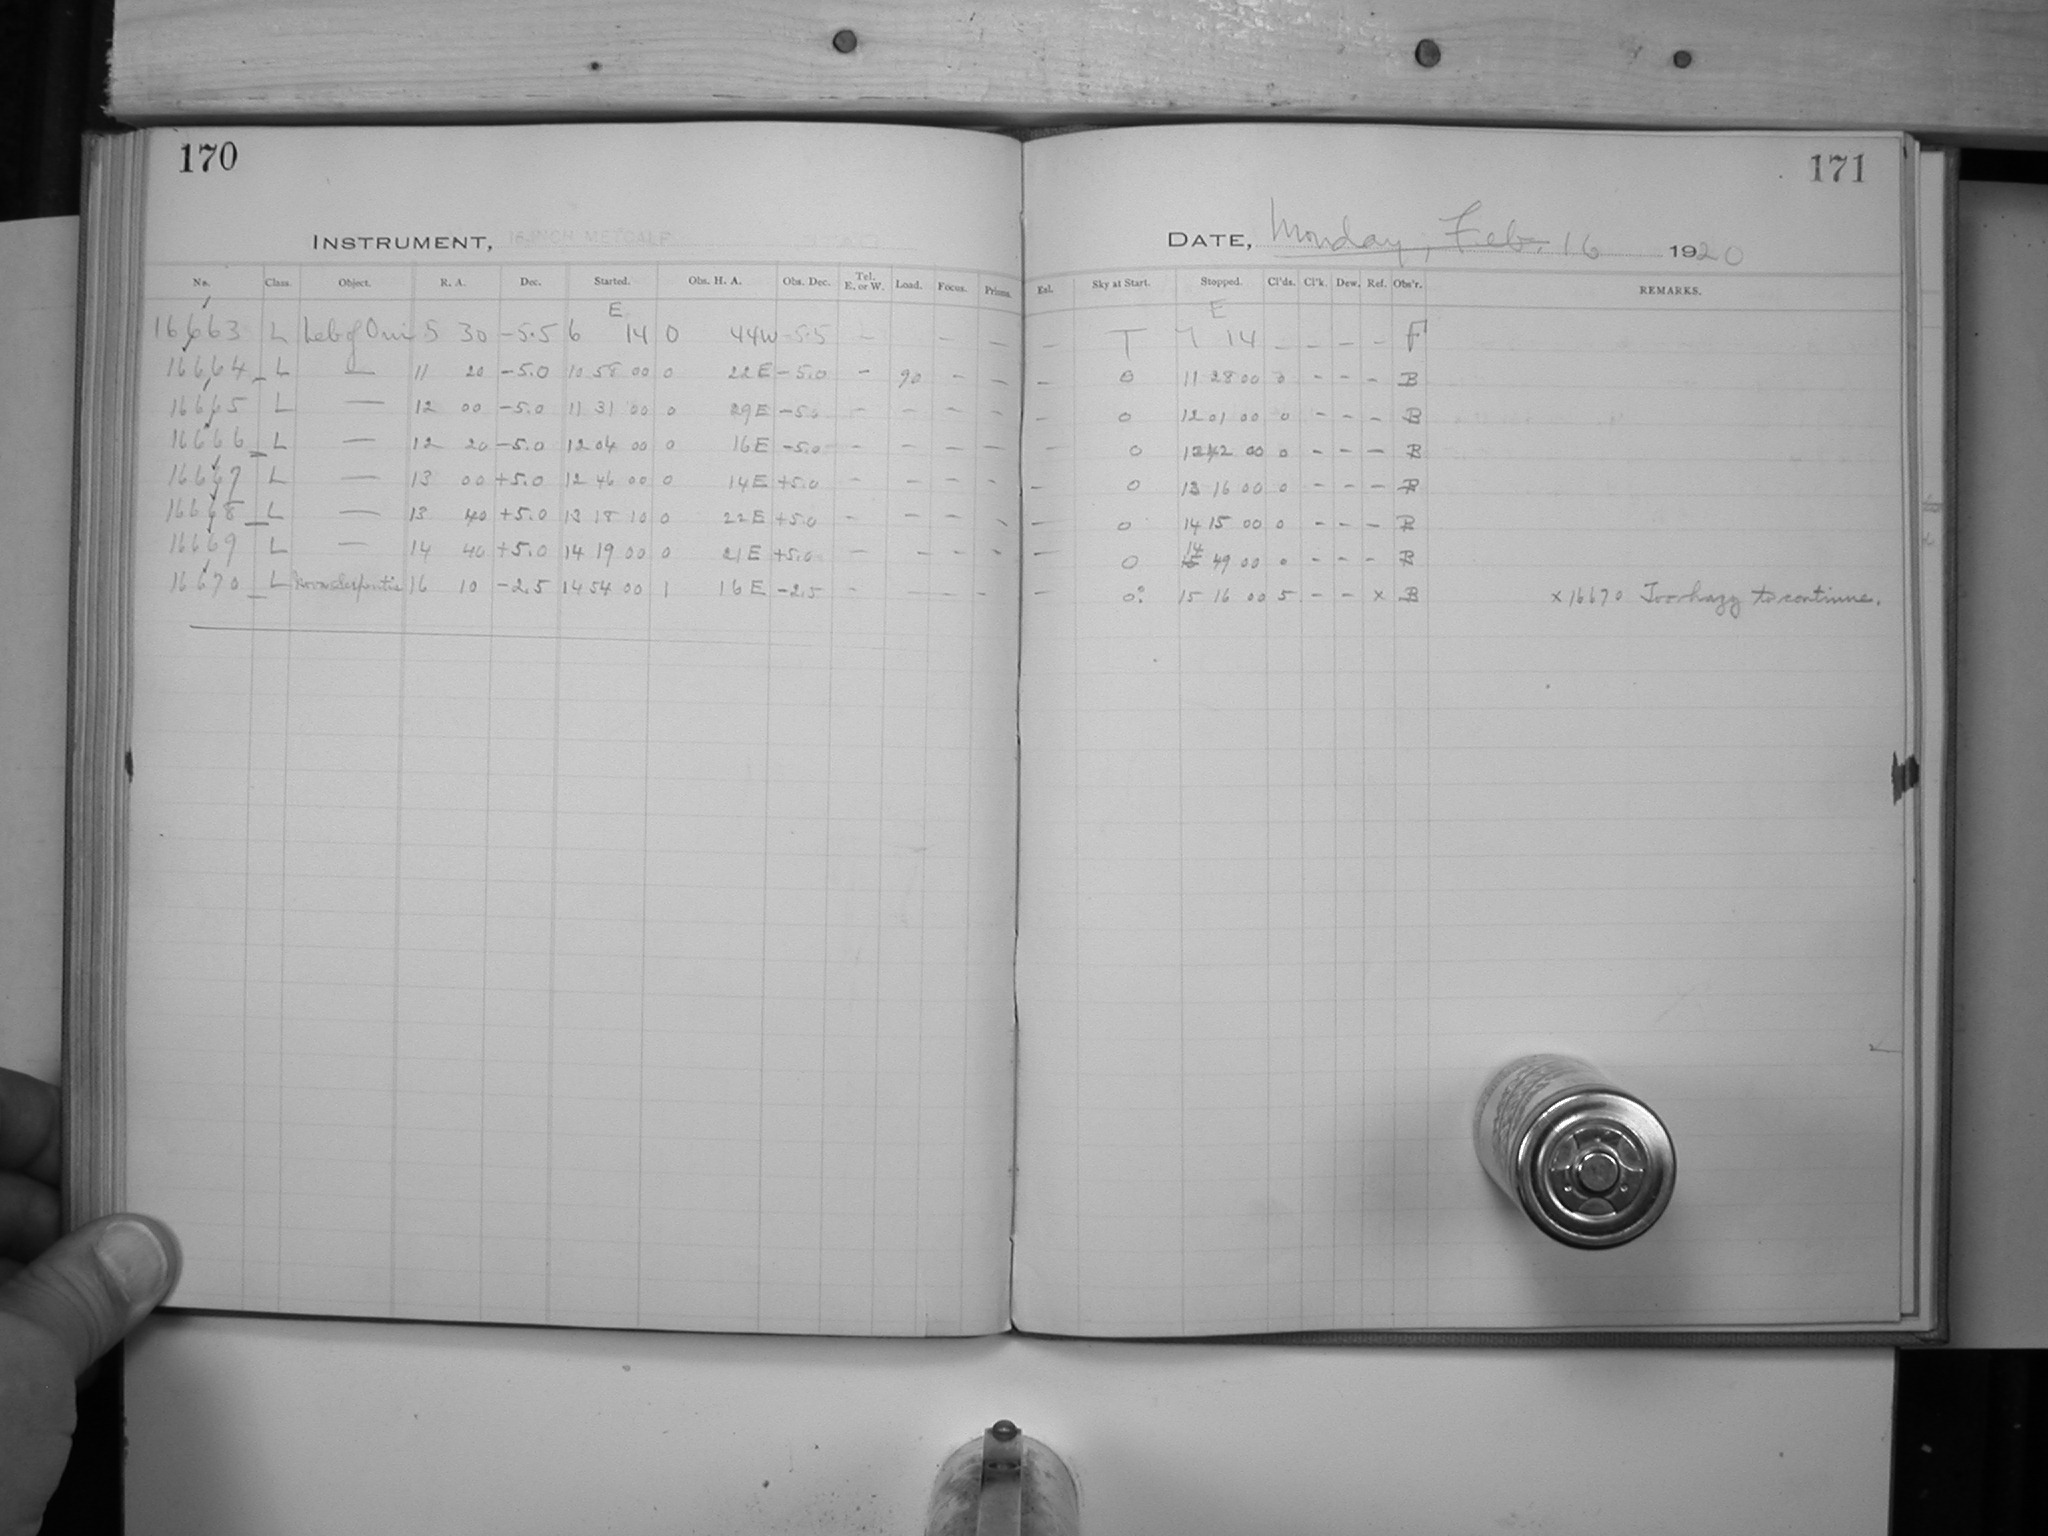 170
171
INSTRUMENT, 16-INCH METCALF
DATE, Monday, Feb. 16 1920
No. Class. Object. R. A. Dec. Started. Obs. H. A. Obs. Dec. Tel. E. or W. Load. Focus. Prisms. Exl. Sky at Start. Stopped. Cl'ds. Cl'k. Dew. Ref. Obs'r. REMARKS.
E E
16663 L Neb of Ori 5 30 -5.5 6 14 0 44W -5.5 - - - - T 7 14 - - - - F
16664 L — 11 20 -5.0 10 58 00 0 22E -5.0 - 90 - - - 0 11 28 00 0 - - - B
16665 L — 12 00 -5.0 11 31 00 0 29E -5.0 - - - - - 0 12 01 00 0 - - - B
16666 L — 12 20 -5.0 12 04 00 0 16E -5.0 - - - - - 0 12 42 00 0 - - - B
16667 L — 13 00 +5.0 12 46 00 0 14E +5.0 - - - - - 0 13 16 00 0 - - - B
16668 L — 13 40 +5.0 13 18 10 0 22E +5.0 - - - - - 0 14 15 00 0 - - - B
16669 L — 14 40 +5.0 14 19 00 0 21E +5.0 - - - - - 0 14 49 00 0 - - - B
16670 L Nova Serpentis 16 10 -2.5 14 54 00 1 16E -2.5 - - - - - 0: 15 16 00 5 - - x B x 16670 Too hazy to continue.